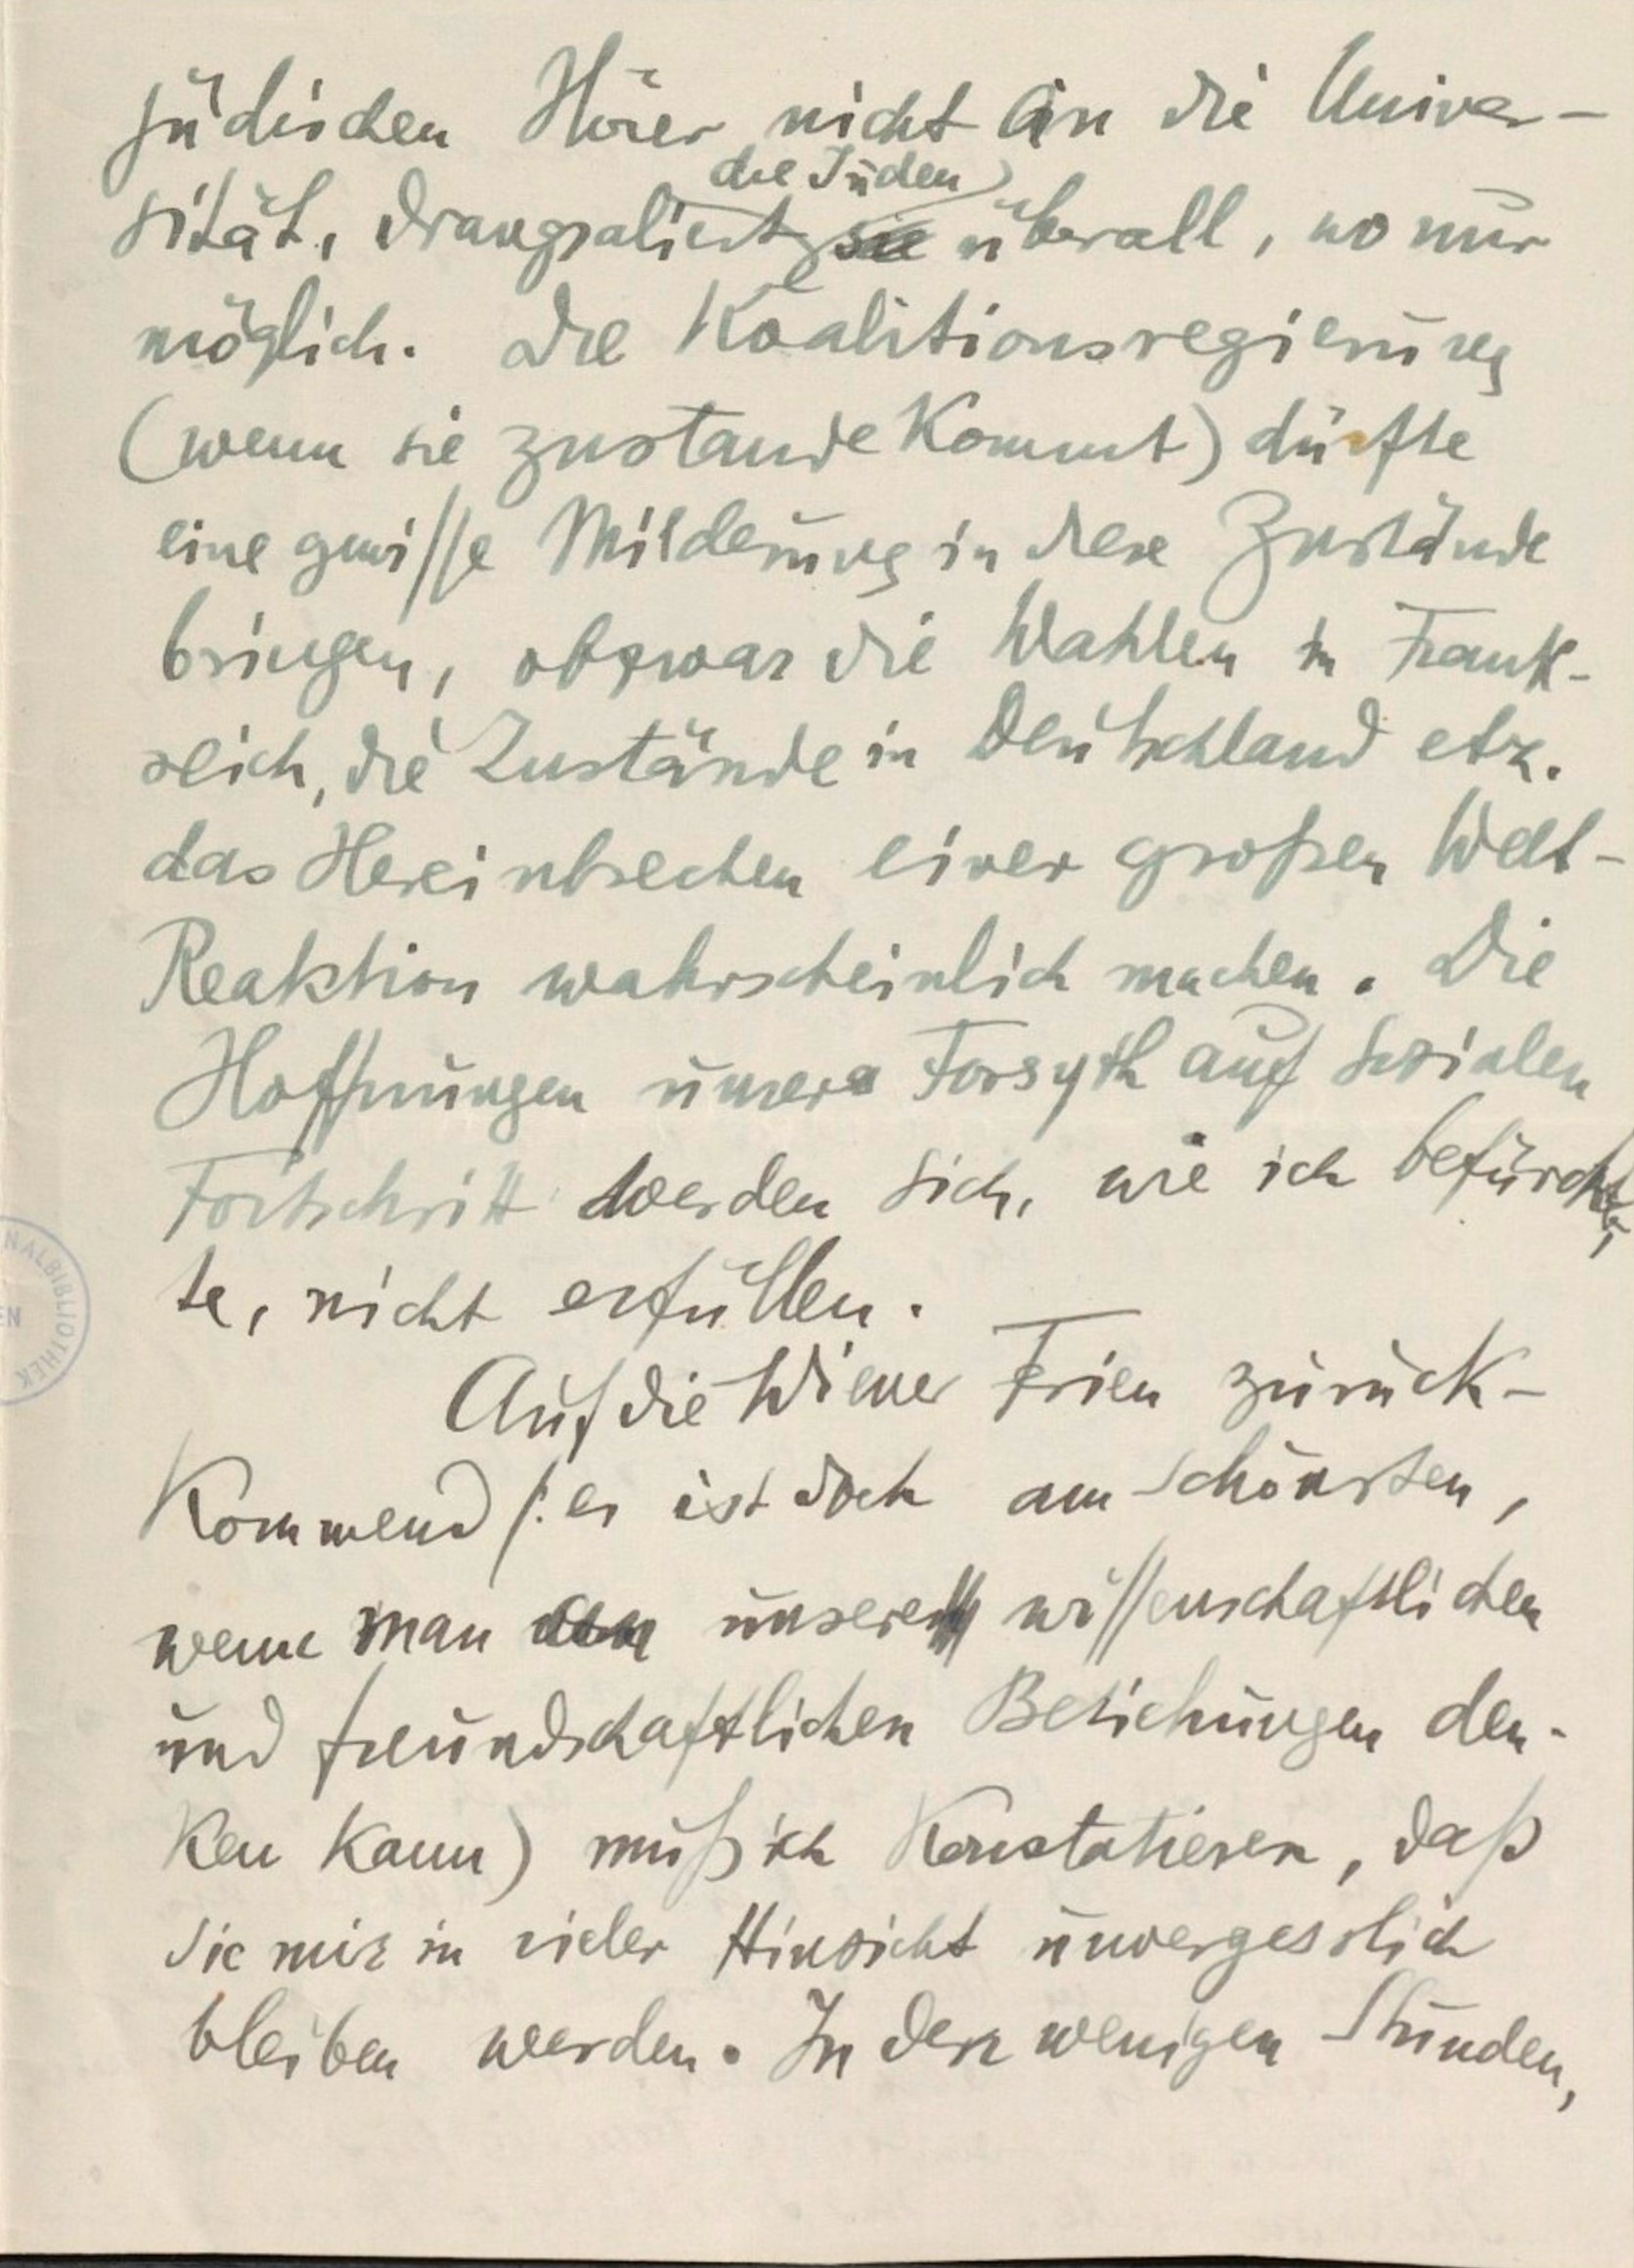 jüdischen Hörer nicht an die Univer-
die Juden
sität, drangsaliert sie überall, wo nur
möglich. Die Koalitionsregierung
(wenn sie zustande kommt) dürfte
eine gewisse Milderung in diese Zustände
bringen, obzwar die Wahlen in Frank-
reich, die Zustände in Deutschland etz.
das Hereinbrechen einer großen Welt-
Reaktion wahrscheinlich machen. Die
Hoffnungen unsers Forsyth auf sozialen
Fortschritt werden sich, wie ich befürch-
te, nicht erfüllen.
NALBIBLIOTHEK
EN
Auf die Wiener Ferien zurück-
kommend (: es ist doch am schönsten,
wenn man unserer wissenschaftlichen
und freundschaftlichen Beziehungen den-
ken kann) muß ich konstatieren, daß
sie mir in vieler Hinsicht unvergesslich
bleiben werden. In den wenigen Stunden,